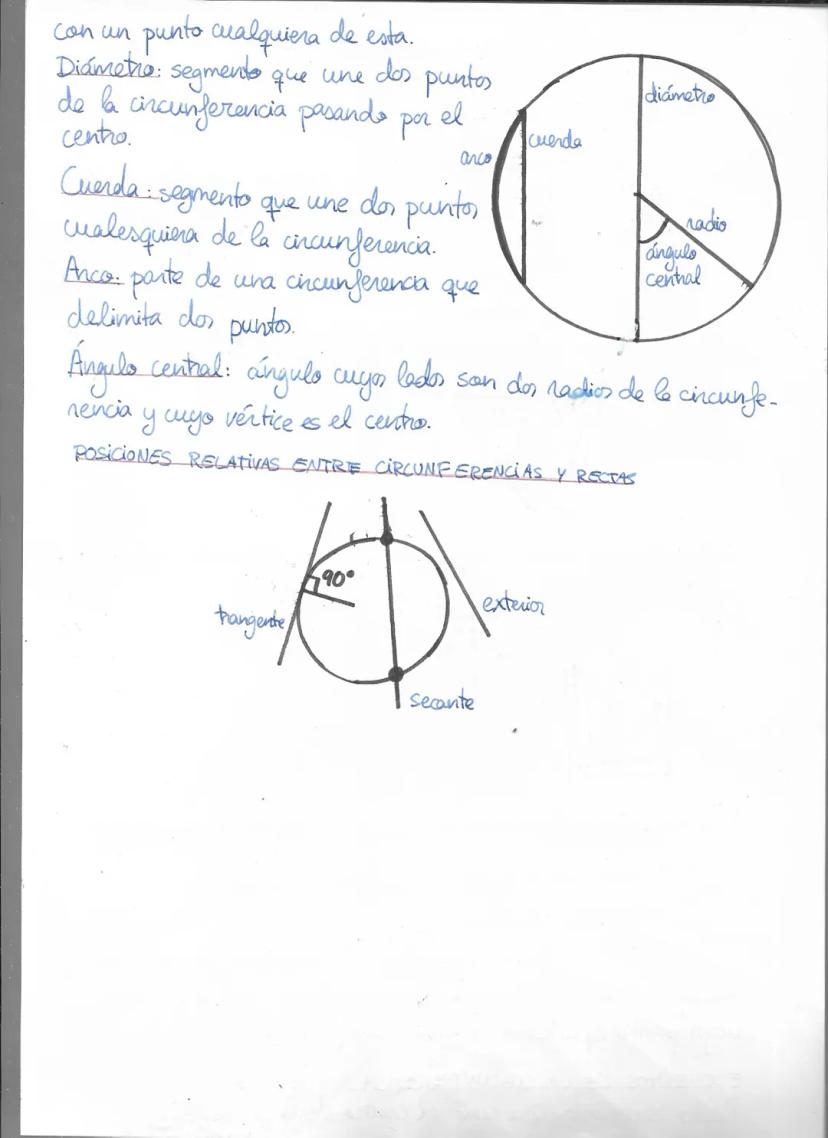 con un punto cualquiera de esta.
Diámetro: segmento que une dos puntos
de la circunferencia pasando por el
centro.
Cuerda: segmento que une dos puntos
cualesquiera de la circunferencia.
Arco: parte de una circunferencia que
delimita dos puntos.
Ángulo central: ángulo cuyos lados son dos radios de la circunfe-
rencia y cuyo vértice es el centro.
diámetro
cuerda
arco
radio
ángulo
central
POSICIONES RELATIVAS ENTRE CIRCUNFERENCIAS Y RECTAS
90°
trangente
exterior
secante